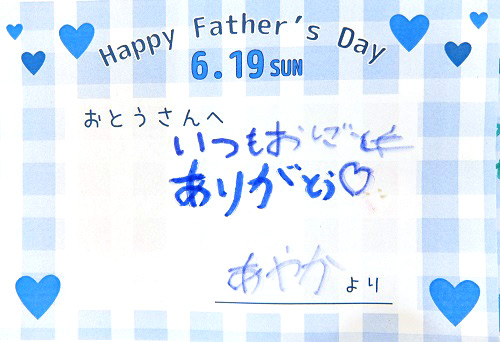 Happy Father's Day
6.19 SUN
おとうさんへ
いつもおしごと
ありがとう♡
あやか より